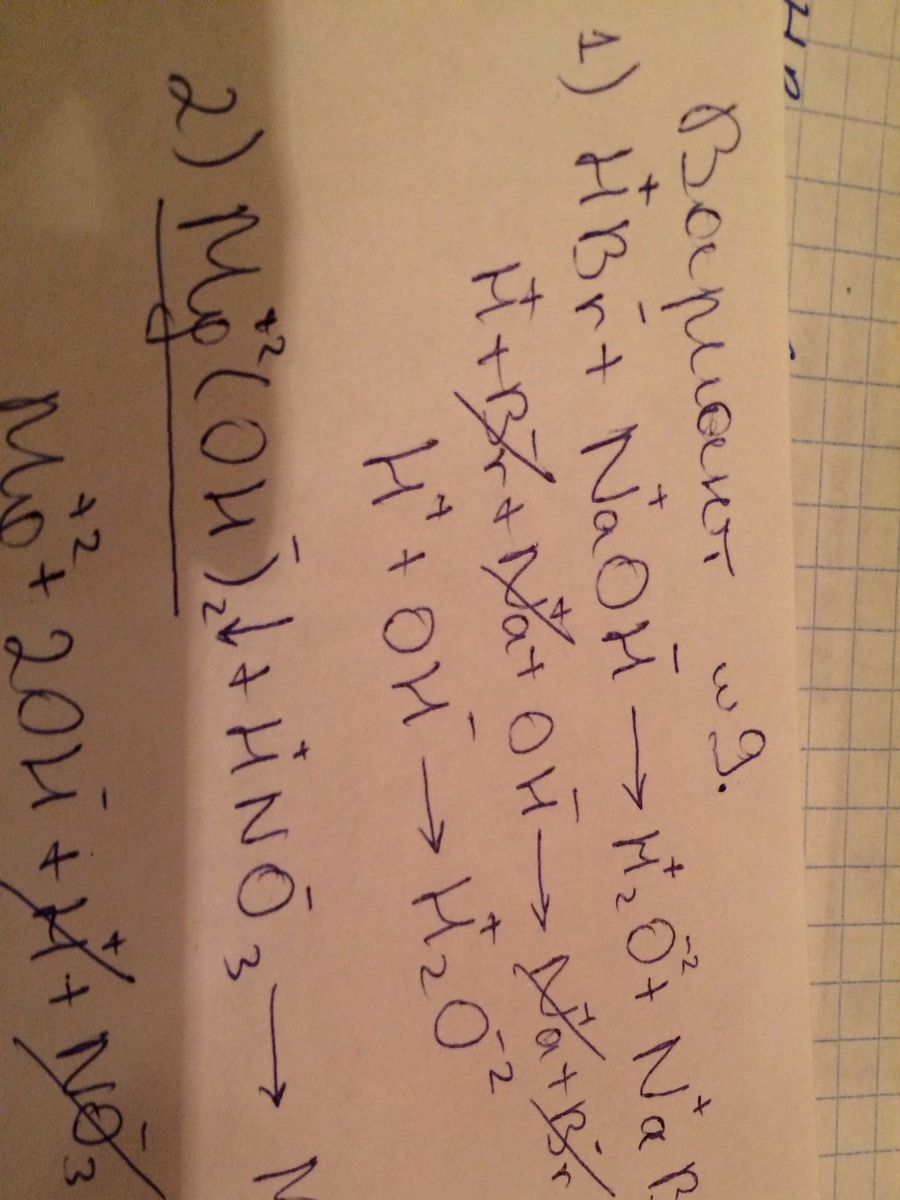 Вариант № 9.
1) H⁺Br⁻ + Na⁺OH⁻ → H₂⁺O⁻² + Na⁺B
H⁺ + Br⁻ + Na⁺ + OH⁻ → Na⁺ + Br⁻
H⁺ + OH⁻ → H₂⁺O⁻²
2) Mg⁺²(OH)₂⁻↓ + H⁺NO₃⁻ → M
Mg⁺² + 2OH⁻ + H⁺ + NO₃⁻